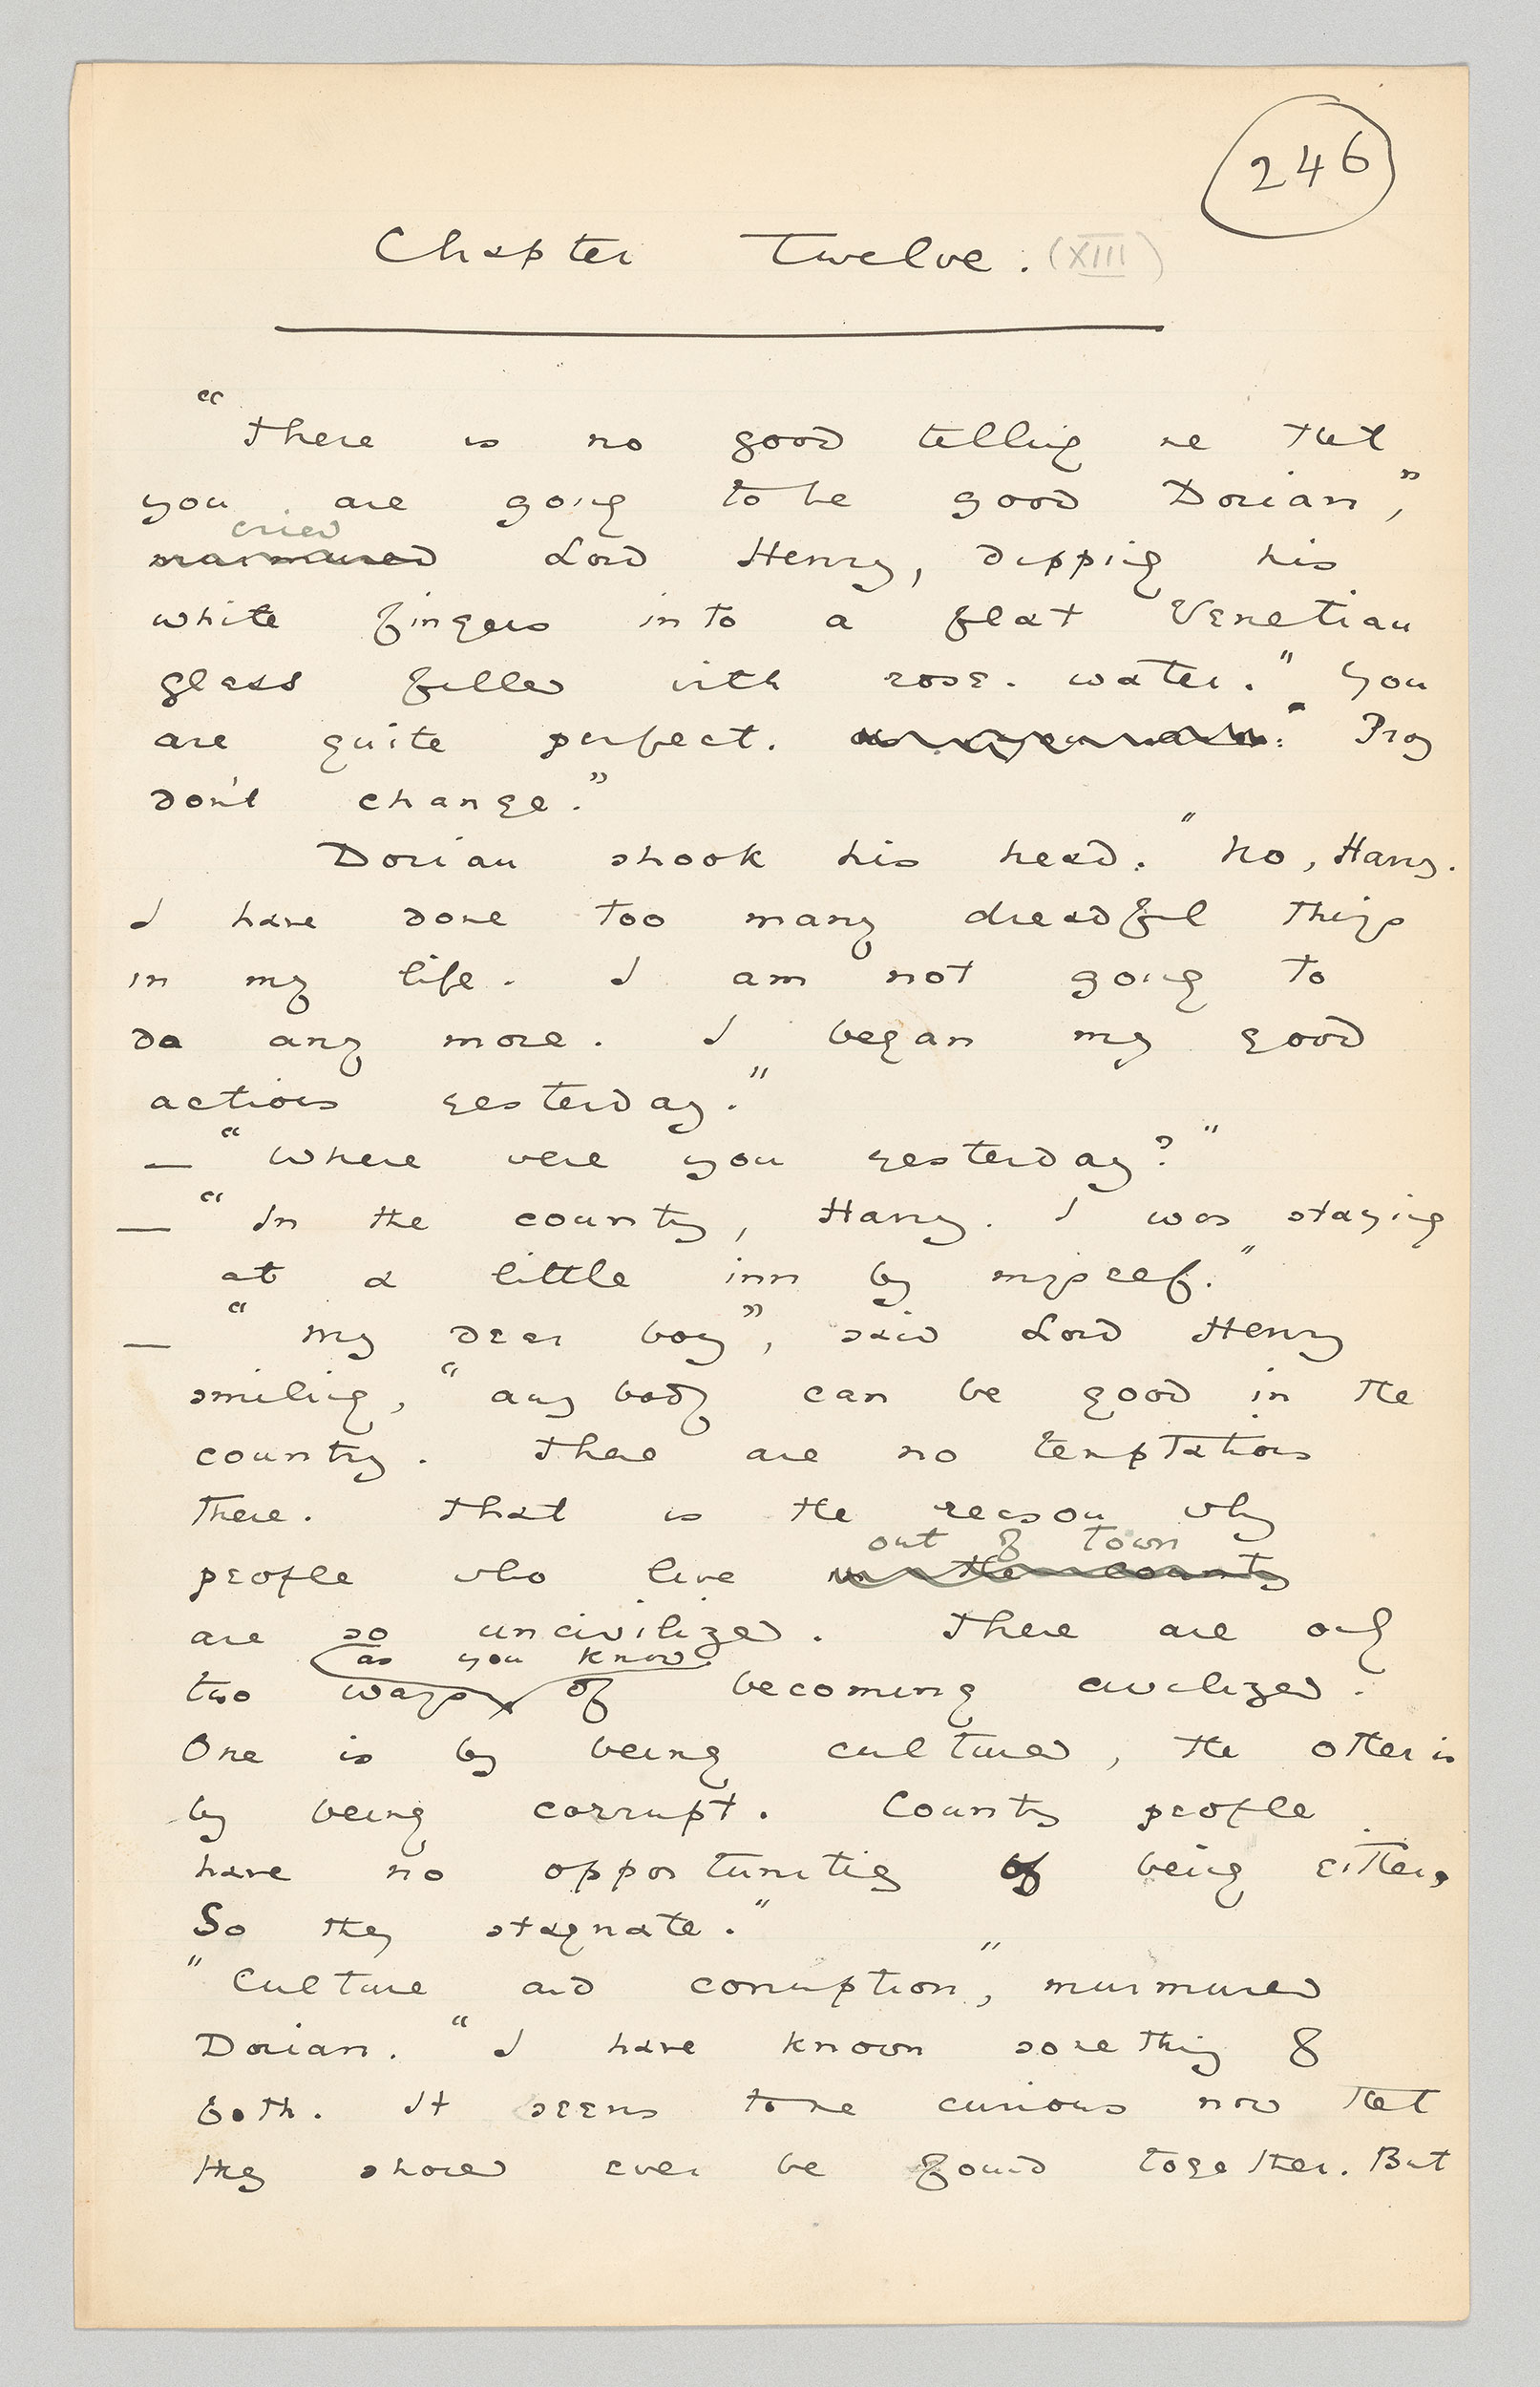 246
Chapter Twelve. (XIII)
"There is no good telling me that
you are going to be good Dorian,"
cried
murmured Lord Henry, dipping his
white fingers into a flat Venetian
glass filled with rose-water. "You
are quite perfect. Pray
don't change."
Dorian shook his head. "No, Harry.
I have done too many dreadful things
in my life. I am not going to
do any more. I began my good
actions yesterday."
— "Where were you yesterday?"
— "In the country, Harry. I was staying
at a little inn by myself."
— "My dear boy", said Lord Henry
smiling, "any body can be good in the
country. There are no temptations
there. That is the reason why
out of town
people who live in the country
are so uncivilized. There are only
as you know
two ways of becoming civilized.
One is by being cultured, the other is
by being corrupt. Country people
have no opportunity of being either,
So they stagnate."
"Culture and corruption," murmured
Dorian. "I have known something of
both. It seems to me curious now that
they should ever be found together. But